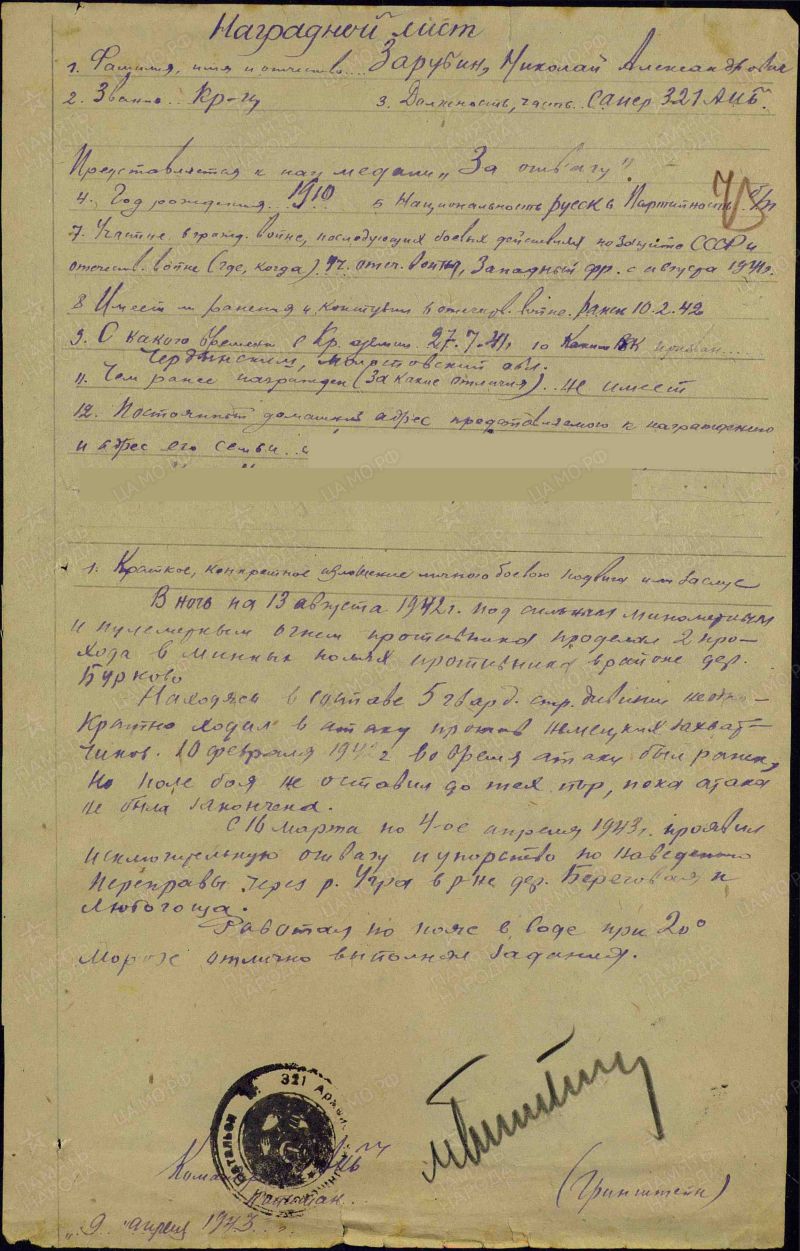 Наградной лист
1. Фамилия, имя и отчество... Зарубин, Николай Александрович
2. Звание... Кр-ц 3. Должность, часть... сапер 321 АИБ.
Представляется к наг медали „За отвагу".
4. Год рождения... 1910 5 Национальность русск 6 Партийность. б/п
7. Участие в гражд. войне, последующих боевых действиях по защите СССР и
отечеств. войне (где, когда). Уч. отеч. войны, Западный фр. с августа 1941г.
8 Имеет ли ранения и контузии в отечеств. войне. ранен 10.2.42
9. С какого времени в Кр. армии. 27.7.41г 10 Каким РВК призван...
Чердынским, Молотовский обл.
11. Чем ранее награжден (за какие отличия).. не имеет
12. Постоянный домашний адрес представляемого к награждению
и адрес его семьи..
1. Краткое, конкретное изложение личного боевого подвига или заслуг
В ночь на 13 августа 1942г. под сильным минометным
и пулеметным огнем противника проделал 2 про-
хода в минных полях противника в районе дер.
Бурково
Находясь в составе 5 гвард. стр. дивизии неодно-
кратно ходил в атаку против немецких захват-
чиков. 10 февраля 1942г во время атаки был ранен,
но поле боя не оставил до тех пор, пока атака
не была закончена.
С 16 марта по 4-ое апреля 1943г. проявил
исключительную отвагу и упорство по наведению
переправы через р. Угра в р-не дер. Береговая и
Любогоща.
Работая по пояс в воде при 20°
морозе отлично выполнял задания.
321 Батальон
Капитан
(Гринштейн)
„9" апреля 1943